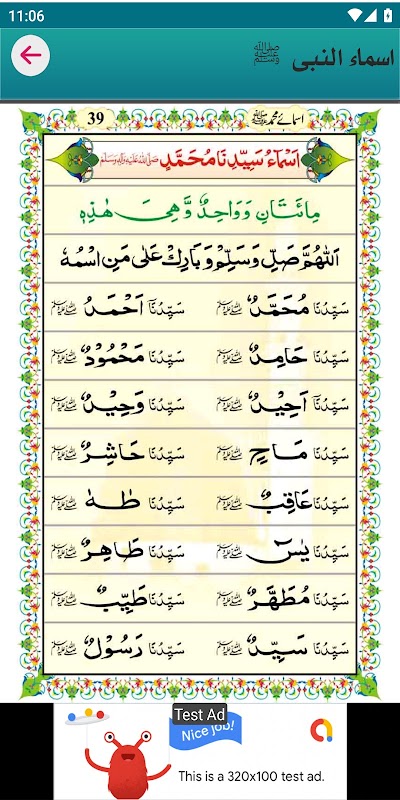 11:06
اسماء النبی ﷺ
39
اسمائے محمد ﷺ
اَسْمَاءُ سَيِّدِنَا مُحَمَّدٍ صلی اللہ علیہ وآلہ وسلم
مِائَتَانِ وَوَاحِدٌ وَّهِىَ هٰذِهٖ
اَللّٰهُمَّ صَلِّ وَسَلِّمْ وَبَارِكْ عَلٰى مَنِ اسْمُهٗ
سَيِّدُنَا مُحَمَّدٌ ﷺ سَيِّدُنَا اَحْمَدُ ﷺ
سَيِّدُنَا حَامِدٌ ﷺ سَيِّدُنَا مَحْمُودٌ ﷺ
سَيِّدُنَا اَحِيْدٌ ﷺ سَيِّدُنَا وَحِيْدٌ ﷺ
سَيِّدُنَا مَاحٍ ﷺ سَيِّدُنَا حَاشِرٌ ﷺ
سَيِّدُنَا عَاقِبٌ ﷺ سَيِّدُنَا طٰهٰ ﷺ
سَيِّدُنَا يٰسٓ ﷺ سَيِّدُنَا طَاهِرٌ ﷺ
سَيِّدُنَا مُطَهَّرٌ ﷺ سَيِّدُنَا طَيِّبٌ ﷺ
سَيِّدُنَا سَيِّدٌ ﷺ سَيِّدُنَا رَسُوْلٌ ﷺ
Test Ad
Nice job!
This is a 320x100 test ad.